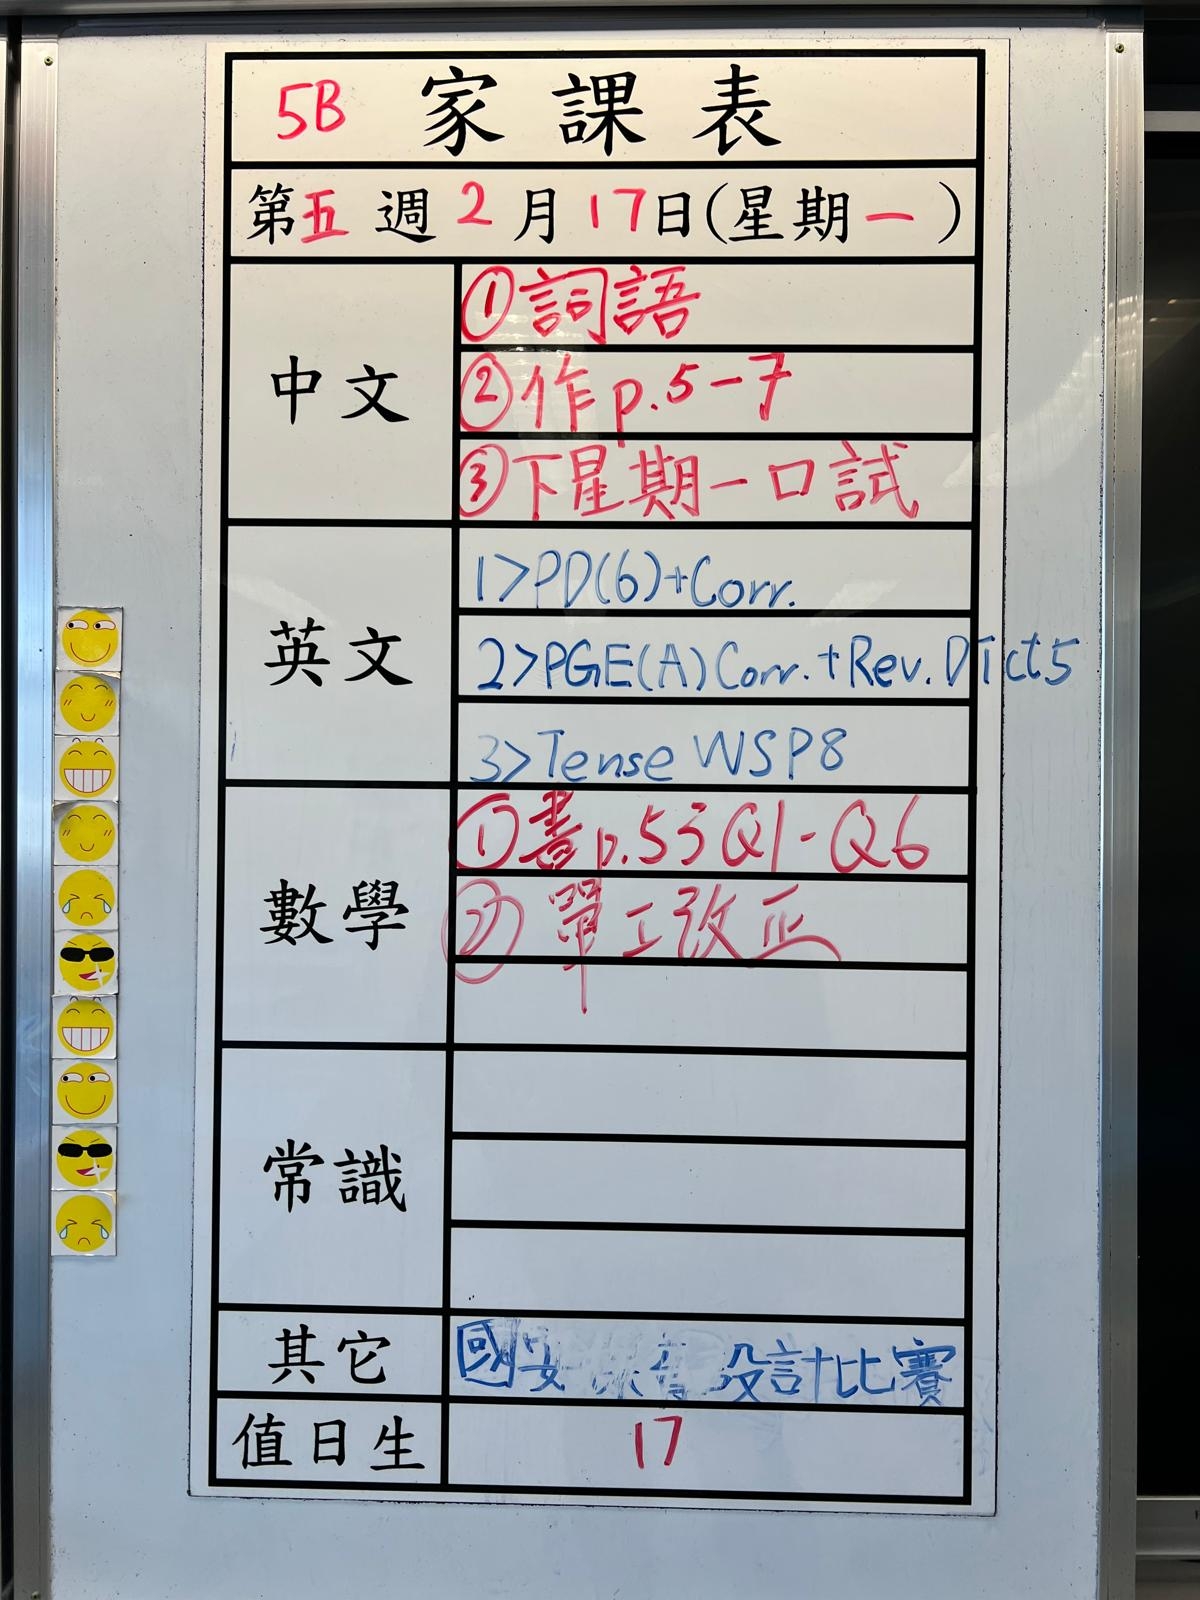 5B 家課表
第五週2月17日(星期一)
中文
①詞語
②作p.5-7
③下星期一口試
英文
1>PD(6)+Corr.
2>PGE(A)Corr.+Rev.Dict5
3>Tense WSP8
數學
①書p.53Q1-Q6
②單工改正
常識
其它
國安 設計比賽
值日生
17